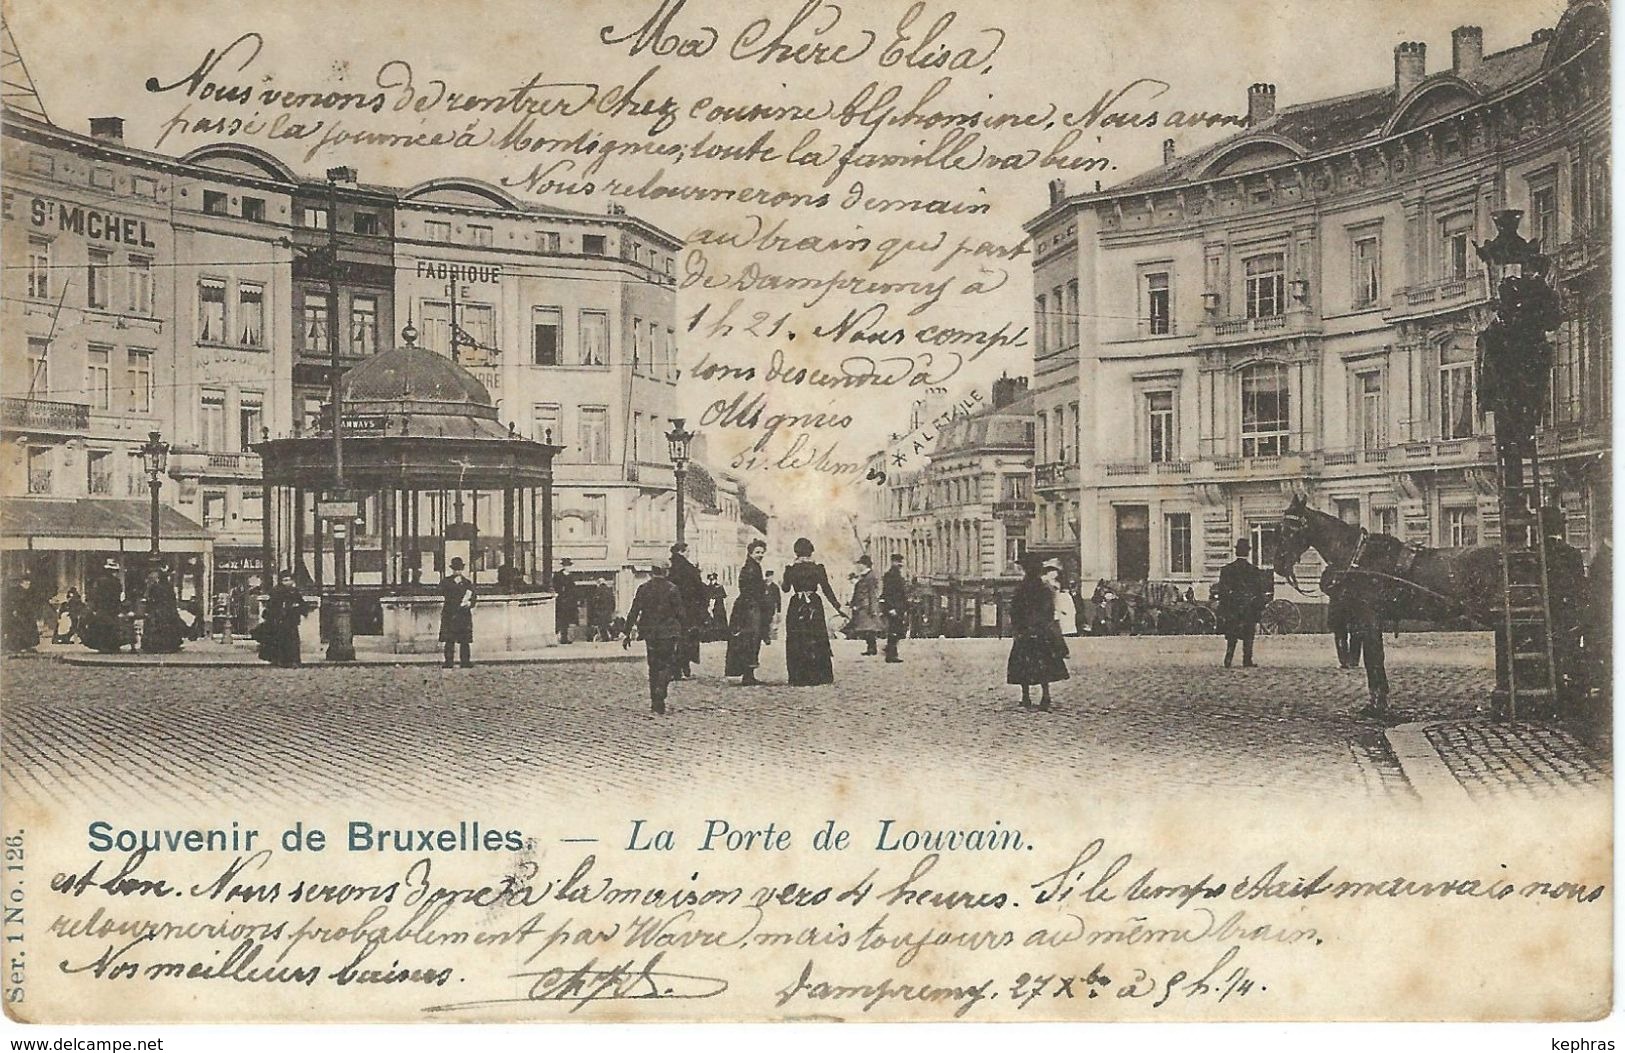 Ma Chère Elisa,
Nous venons de rentrer chez cousine Alphonsine. Nous avons
passé la journée à Montignies, toute la famille va bien.
Nous retournerons demain
au train qui part
de Dampremy à
1 h 21. Nous comp-
tons descendre à
Ottignies
si le temps
E ST MICHEL
FABRIQUE
DE
TRAMWAYS
* AL. RTAILE
Souvenir de Bruxelles. — La Porte de Louvain.
est bon. Nous serons donc à la maison vers 4 heures. Si le temps était mauvais nous
retournerions probablement par Wavre, mais toujours au même train.
Nos meilleurs baisers.
Dampremy, 27 Xbre à 5 h. 1/4.
Ser. 1 No. 126.
www.delcampe.net
kephras